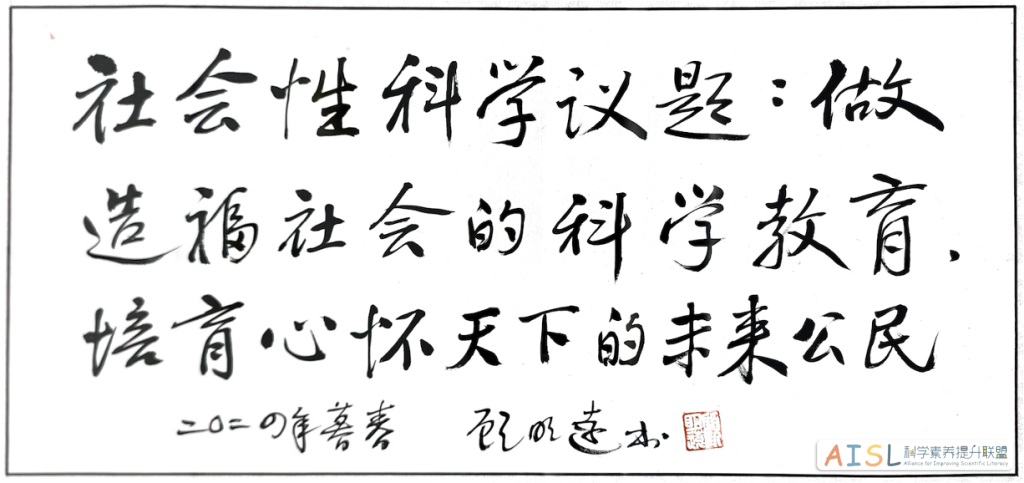 社会性科学议题：做
造福社会的科学教育，
培育心怀天下的未来公民
二〇二四年暮春 顾明远书
AISL 科学素养提升联盟
Alliance for Improving Scientific Literacy